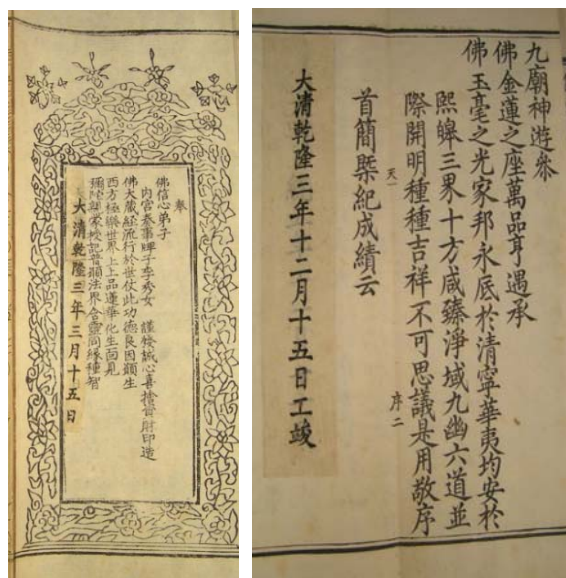 奉
佛信心弟子
内宫奉事婢子李秀女 謹發誠心喜捨資財印造
佛大藏經流行於世仗此功德良因願生
西方極樂世界上上品蓮華化生面見
彌陀親蒙授記普願法界含靈同緣種智
大清乾隆三年三月十五日
九廟神遊叅
佛金蓮之座萬品亨遇承
佛玉毫之光家邦永底於清寧華夷均安於
熙皞三界十方咸臻淨域九幽六道並
際開明種種吉祥不可思議是用敬序
天一 序二
首簡槩紀成績云
大清乾隆三年十二月十五日工竣